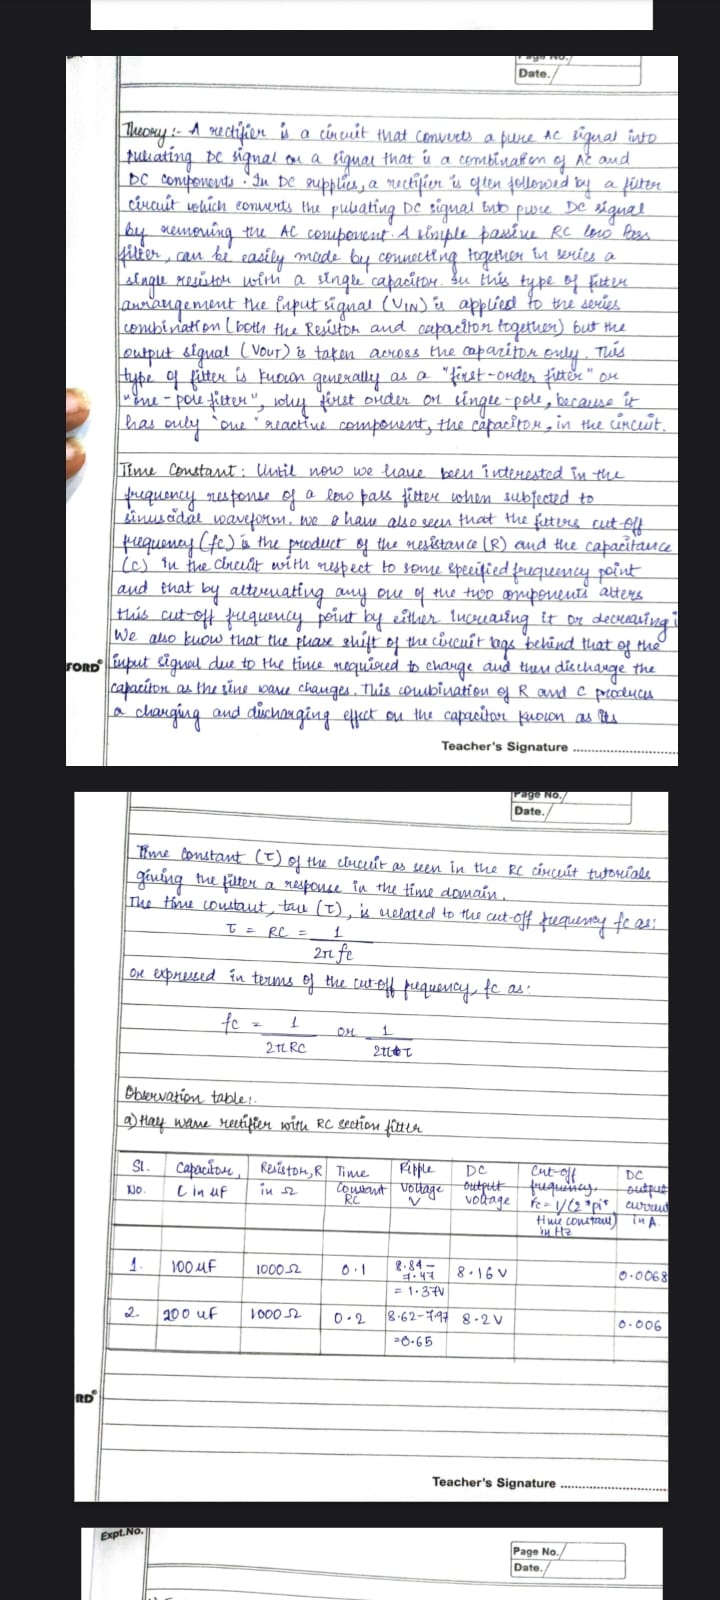 Page No.
Date.
Theory :- A rectifier is a circuit that converts a pure AC signal into
pulsating DC signal or a signal that is a combination of AC and
DC components. In DC supplies, a rectifier is often followed by a filter
circuit which converts the pulsating DC signal into pure DC signal
by removing the AC component. A simple passive RC low Pass
filter, can be easily made by connecting together in series a
single resistor with a single capacitor. In this type of filter
arrangement the input signal (VIN) is applied to the series
combination (both the Resistor and capacitor together) but the
output signal (VOUT) is taken across the capacitor only. This
type of filter is known generally as a "first-order filter" or
"one-pole filter", why first order or single-pole, because it
has only "one" reactive component, the capacitor, in the circuit.
Time Constant: Until now we have been interested in the
frequency response of a low pass filter when subjected to
sinusoidal waveform. we have also seen that the filters cut-off
frequency (fc) is the product of the resistance (R) and the capacitance
(C) in the circuit with respect to some specified frequency point
and that by alternating any one of the two components alters
this cut-off frequency point by either increasing it or decreasing i
We also know that the phase shift of the circuit lags behind that of the
FORD
input signal due to the time required to charge and then discharge the
capacitor as the sine wave changes. This combination of R and C produces
a charging and discharging effect on the capacitor known as its
Teacher's Signature
Page No.
Date.
Time Constant (τ) of the circuit as seen in the RC circuit tutorials
giving the filter a response in the time domain.
The time constant, tau (τ), is related to the cut-off frequency fc as:
τ = RC = 1 / 2π fc
or expressed in terms of the cut-off frequency, fc as:
fc = 1 / 2πRC or 1 / 2πτ
Observation table:.
a) Half wave rectifier with RC section filter
Sl. No. Capacitor, C in uF Resistor, R in Ω Time Constant RC Ripple Voltage V DC output voltage Cut-off frequency. Fc = 1/(2*pi* time constant) in Hz DC output current in A.
1. 100 uF 1000 Ω 0.1 8.84 - 7.47 = 1.37V 8.16 V 0.0068
2. 200 uF 1000 Ω 0.2 8.62-7.97 =0.65 8.2 V 0.006
RD
Teacher's Signature
Expt.No.
Page No.
Date.